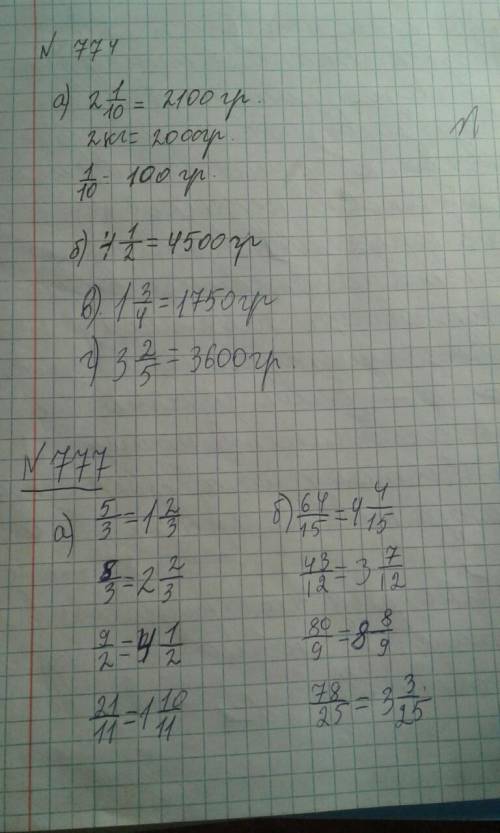 N 774
а) 2 1/10 = 2100 гр.
2 кг = 2000 гр.
1/10 = 100 гр.
б) 4 1/2 = 4500 гр
в) 1 3/4 = 1750 гр
г) 3 2/5 = 3600 гр.
N 777
а) 5/3 = 1 2/3
8/3 = 2 2/3
9/2 = 4 1/2
21/11 = 1 10/11
б) 64/15 = 4 4/15
43/12 = 3 7/12
80/9 = 8 8/9
78/25 = 3 3/25